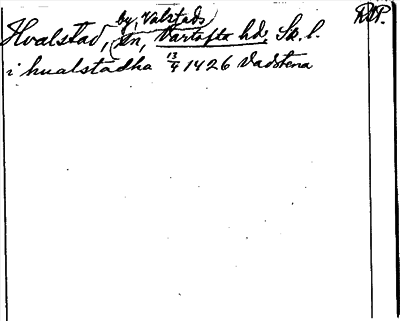 Hvalstad, by, Valstads sn, Vartofta hd, Sk. l. RAP.
i hualstadha 13/4 1426 Vadstena